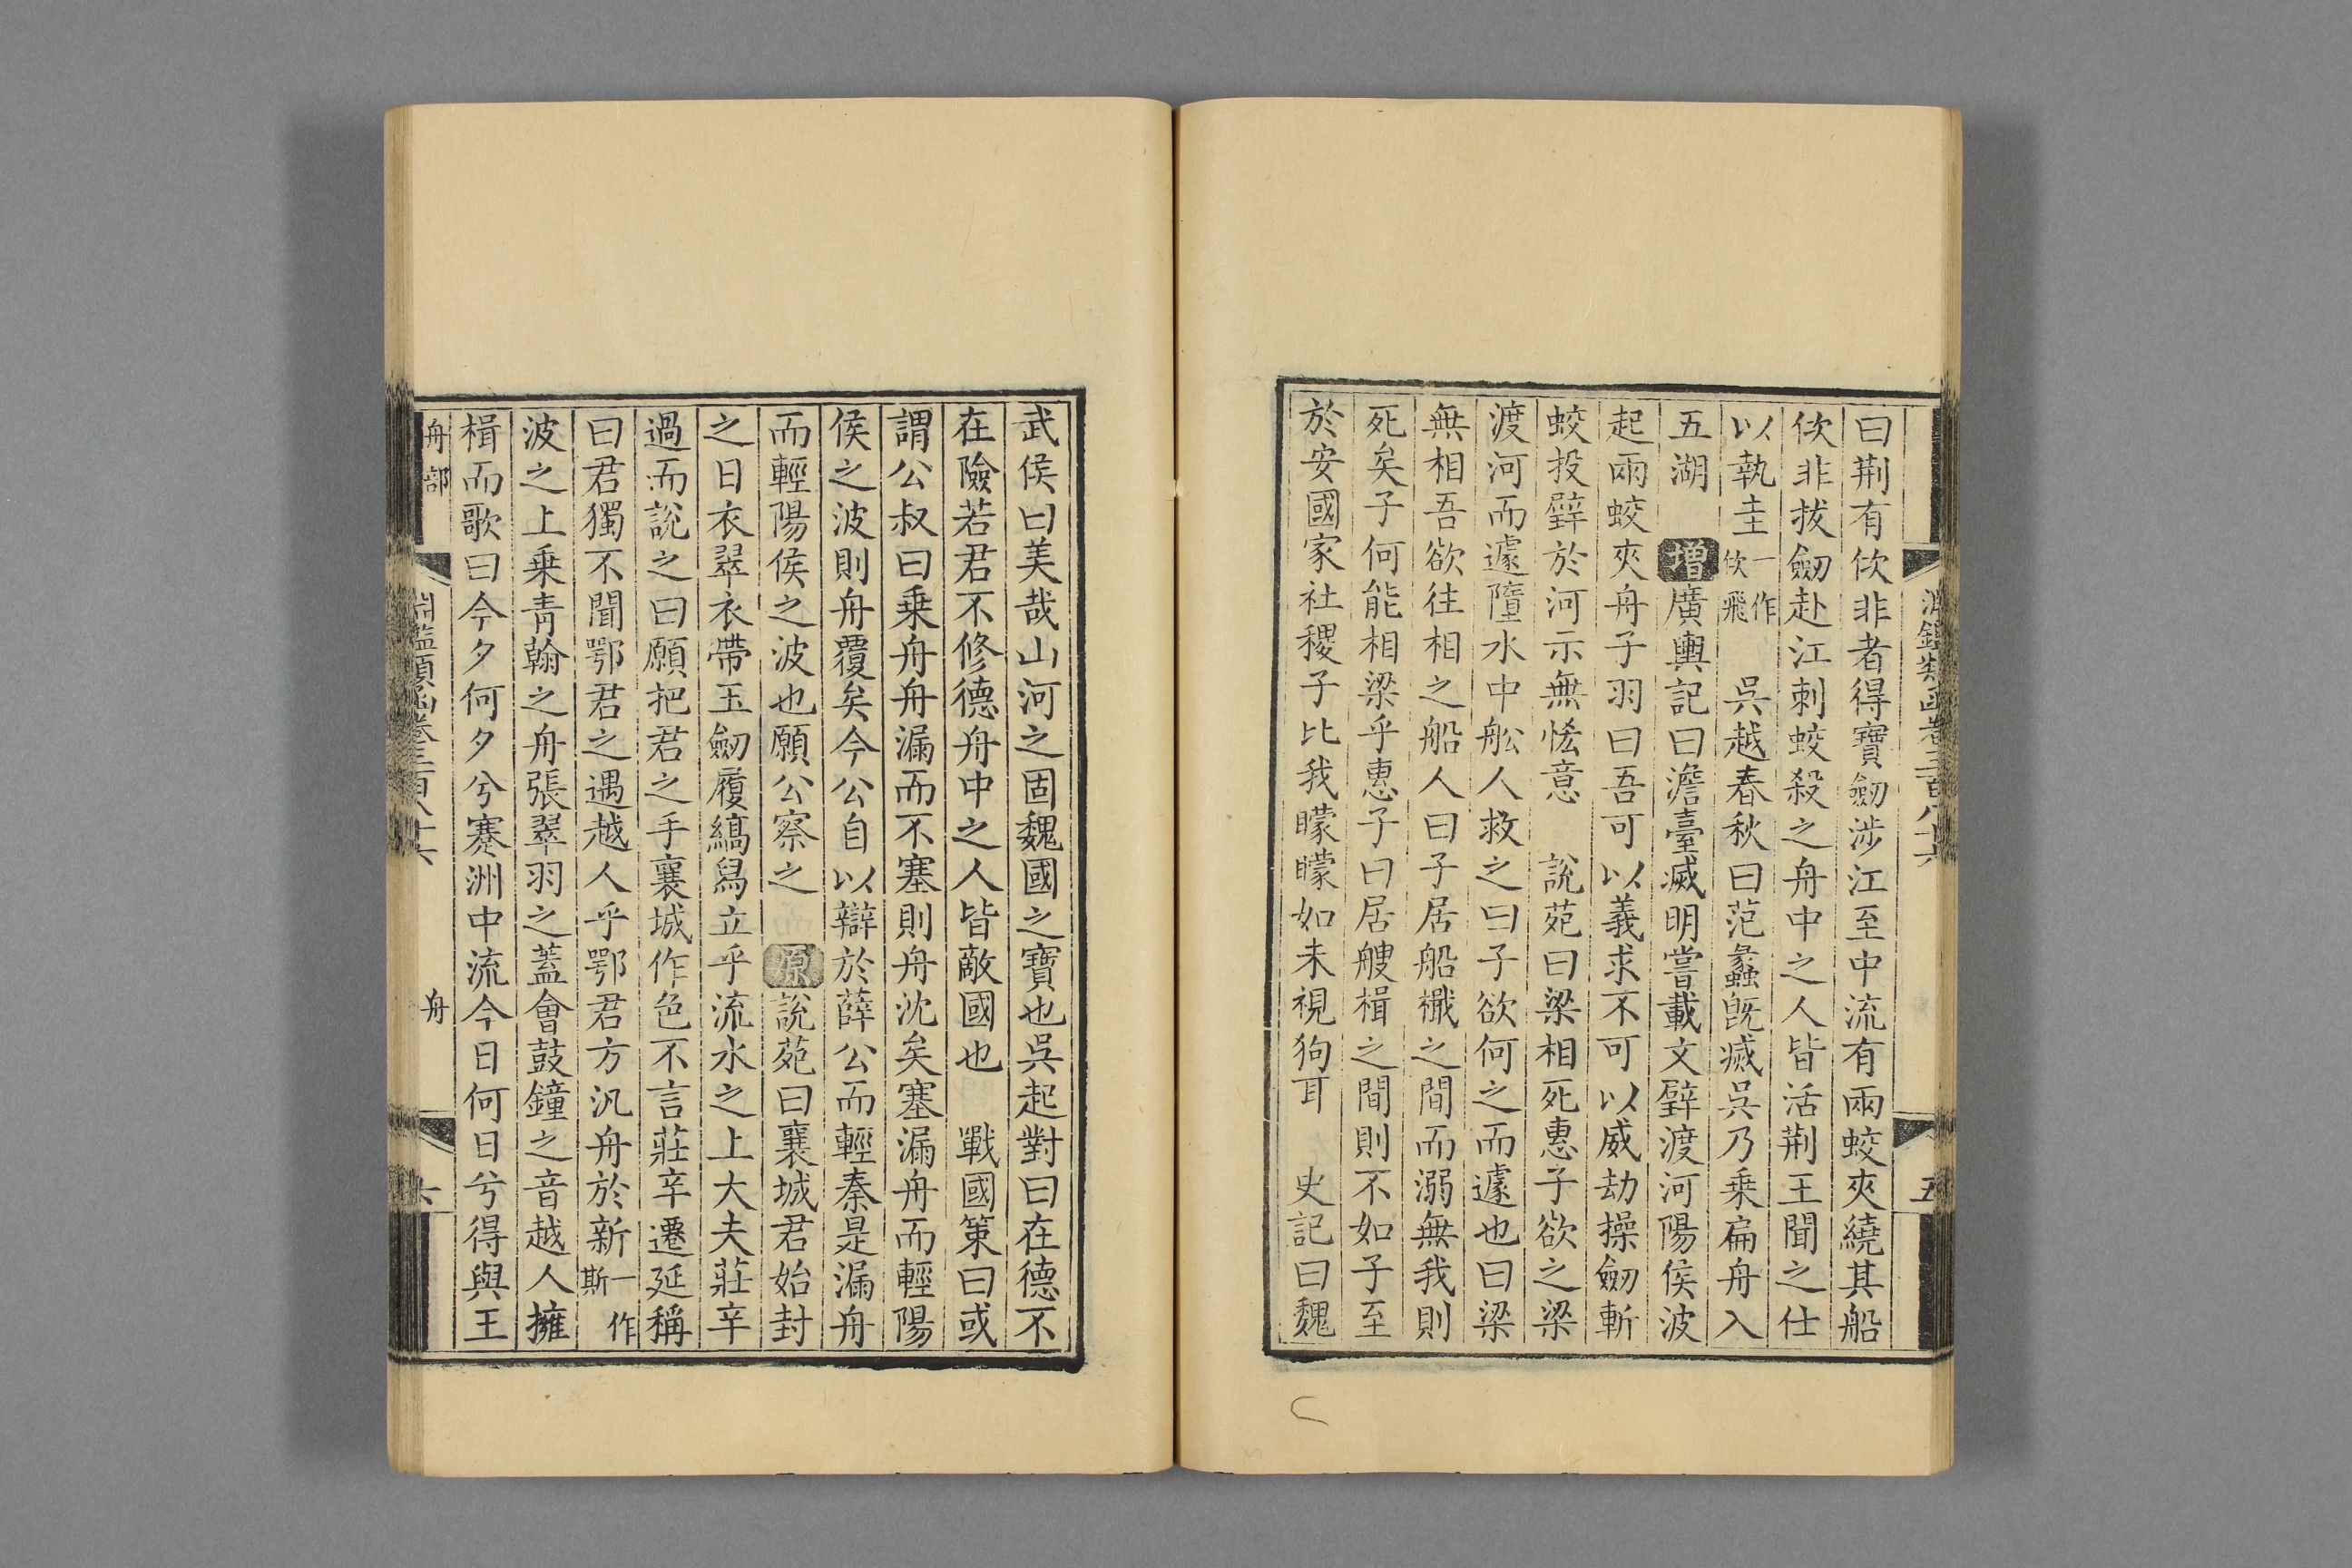 淵鑑類函卷三百八十六
五
曰荆有佽非者得寶劒涉江至中流有兩蛟夾繞其船
佽非拔劒赴江刺蛟殺之舟中之人皆活荆王聞之仕
以執圭一作佽飛 吳越春秋曰范蠡旣滅吳乃乗扁舟入
五湖 增廣輿記曰澹臺滅明嘗載文璧渡河陽侯波
起兩蛟夾舟子羽曰吾可以義求不可以威劫操劒斬
蛟投璧於河示無恡意 說苑曰梁相死惠子欲之梁
渡河而遽墮水中舩人救之曰子欲何之而遽也曰梁
無相吾欲往相之船人曰子居船檝之間而溺無我則
死矣子何能相梁乎惠子曰居艘楫之間則不如子至
於安國家社稷子比我矇矇如未視狗耳 史記曰魏
武侯曰美哉山河之固魏國之寶也吳起對曰在德不
在險若君不修德舟中之人皆敵國也 戰國策曰或
謂公叔曰乗舟舟漏而不塞則舟沈矣塞漏舟而輕陽
侯之波則舟覆矣今公自以辯於薛公而輕秦是漏舟
而輕陽侯之波也願公察之 原說苑曰襄城君始封
之日衣翠衣帶玉劒履縞舄立乎流水之上大夫莊辛
過而說之曰願把君之手襄城作色不言莊辛遷延稱
曰君獨不聞鄂君之遇越人乎鄂君方汎舟於新一作斯
波之上乗青翰之舟張翠羽之蓋會鼓鐘之音越人擁
楫而歌曰今夕何夕兮搴洲中流今日何日兮得與王
舟部 淵鑑類函卷三百八十六 舟 六